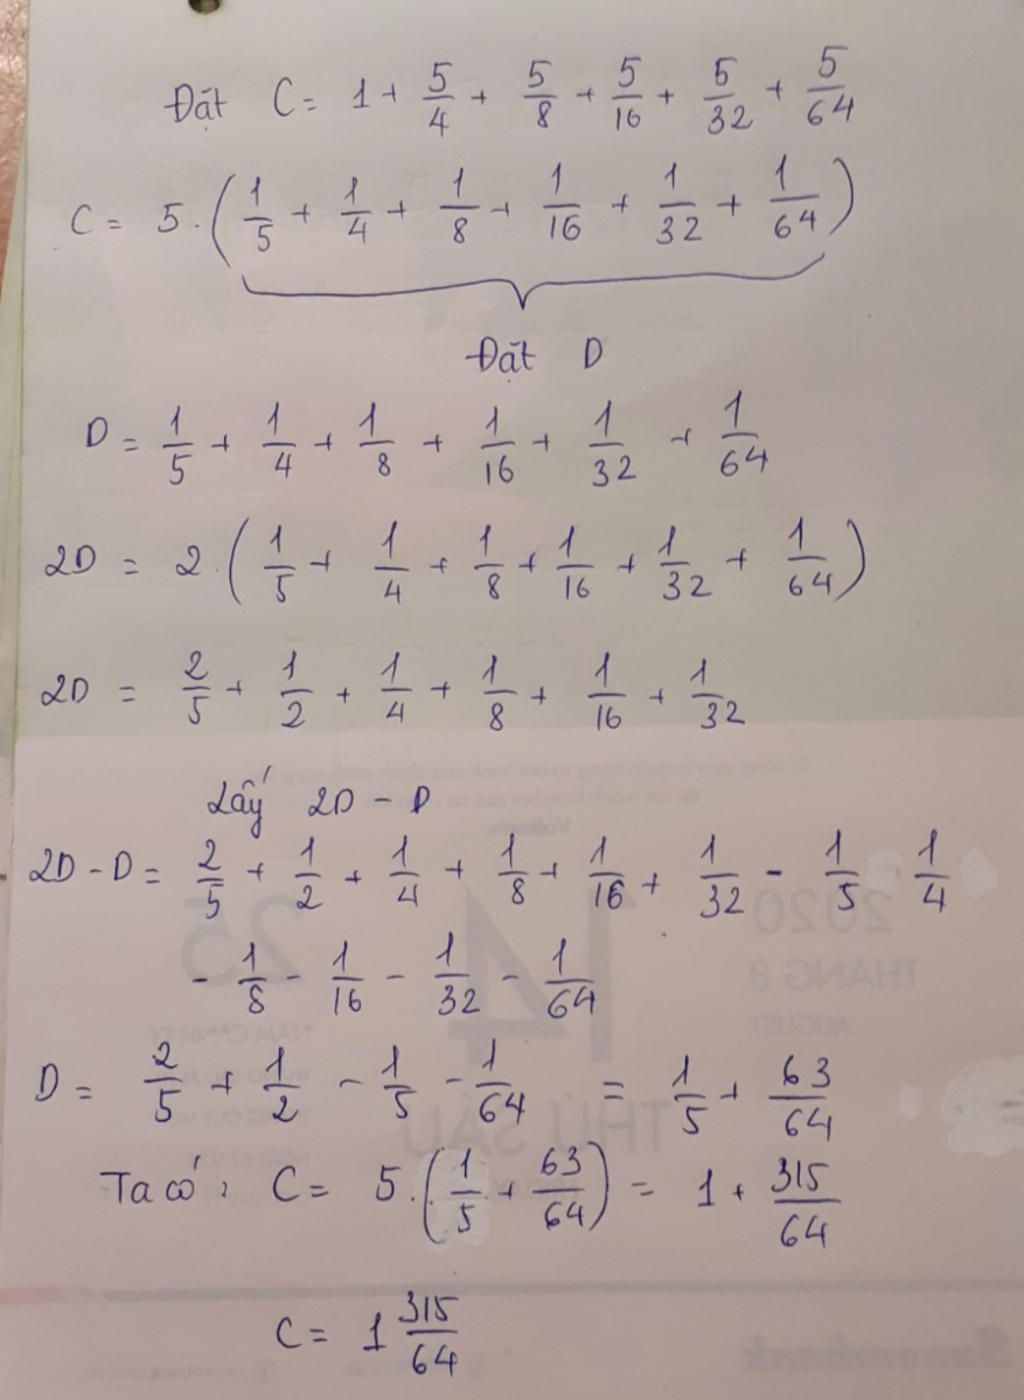 Đặt C = 1 + 5/4 + 5/8 + 5/16 + 5/32 + 5/64
C = 5 . (1/5 + 1/4 + 1/8 + 1/16 + 1/32 + 1/64)
Đặt D
D = 1/5 + 1/4 + 1/8 + 1/16 + 1/32 + 1/64
2D = 2 . (1/5 + 1/4 + 1/8 + 1/16 + 1/32 + 1/64)
2D = 2/5 + 1/2 + 1/4 + 1/8 + 1/16 + 1/32
Lấy 2D - D
2D - D = 2/5 + 1/2 + 1/4 + 1/8 + 1/16 + 1/32 - 1/5 - 1/4
- 1/8 - 1/16 - 1/32 - 1/64
D = 2/5 + 1/2 - 1/5 - 1/64 = 1/5 + 63/64
Ta có: C = 5 . (1/5 + 63/64) = 1 + 315/64
C = 1 315/64
14
25
2020
THÁNG 8
AUGUST
THỨ SÁU
Sacombank